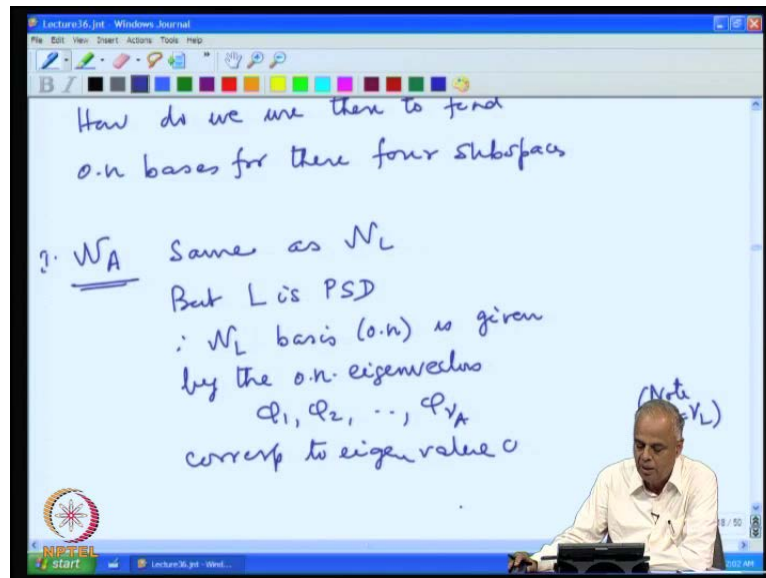 Lecture36.jnt - Windows Journal
File Edit View Insert Actions Tools Help
B I
How do we use these to find
o.n bases for these four subspaces
?. N_A Same as N_L
But L is PSD
∴ N_L basis (o.n) is given
by the o.n. eigenvectors
φ1, φ2, .., φν_A
(Note
=ν_L)
corresp to eigenvalue 0
48 / 50
NPTEL
start Lecture36.jnt - Wind...
2:02 AM